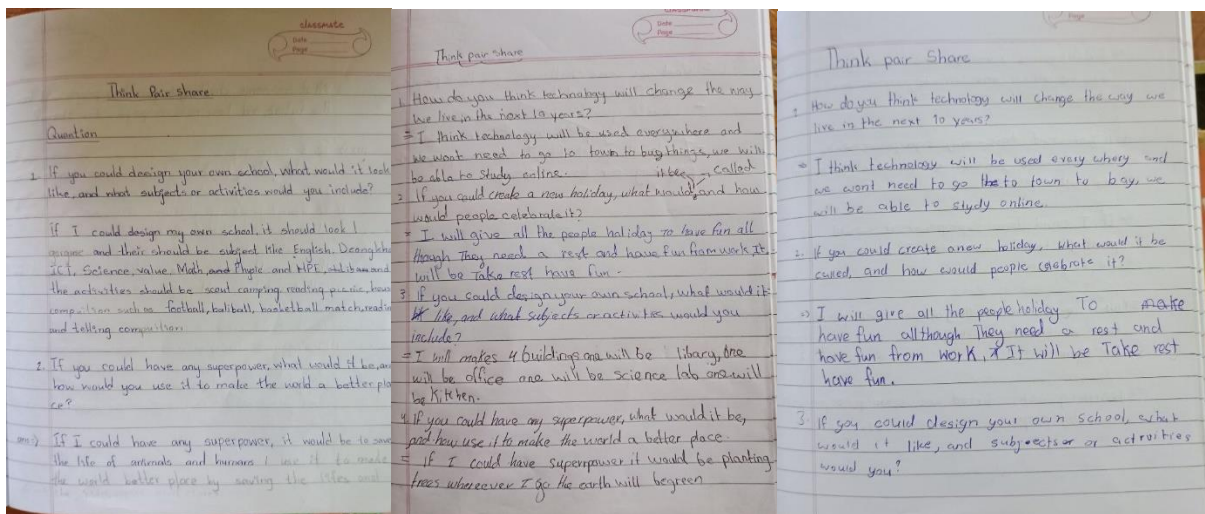 classmate
Date
Page
Think Pair share
Question
1. If you could design your own school, what would it look
like, and what subjects or activities would you include?
if I could design my own school, it should look
and their should be subject like English, Dzongkha
ICT, Science, value, Math, and Phyic and HPE, and
the activities should be scout camping, reading picnic, have
such as football, baliball, basketball match, readin
and telling
2. If you could have any superpower, what would it be, an
how would you use it to make the world a better pla
ce?
ans:) If I could have any superpower, it would be to save
the life of animals and humans I use it to made
the world better place by saving the lifes and
Date
Page
Think pair share
1. How do you think technology will change the way
we live in the next 10 years?
= I think technology will be used everywhere and
we wont need to go to town to buy things, we will
be able to study online.
it be called
2. If you could create a new holiday, what would and how
would people celebrate it?
* I will give all the people holiday To have fun all
though They need a rest and have fun from work, It
will be Take rest have fun.
3. If you could design your own school, what would it
like, and what subjects or activites would you
include?
= I will makes 4 buildings one will be libary, one
will be office one will be science lab one will
be Kitchen.
4. If you could have any superpower, what would it be,
and how use it to make the world a better place.
= If I could have superpower it would be planting
trees whereever I go the earth will begreen
Page
Think pair Share
How do you think technology will change the way we
live in the next 10 years?
I think technology will be used every whery and
we wont need to go to town to bay, we
will be able to study online.
2. If you could create a new holiday, what would it be
called, and how would people celebrate it?
=) I will give all the people holiday To make
have fun allthough They need a rest and
have fun from work, It will be Take rest
have fun.
3. If you could design your own school, what
would it like, and subjects or activities
would you?